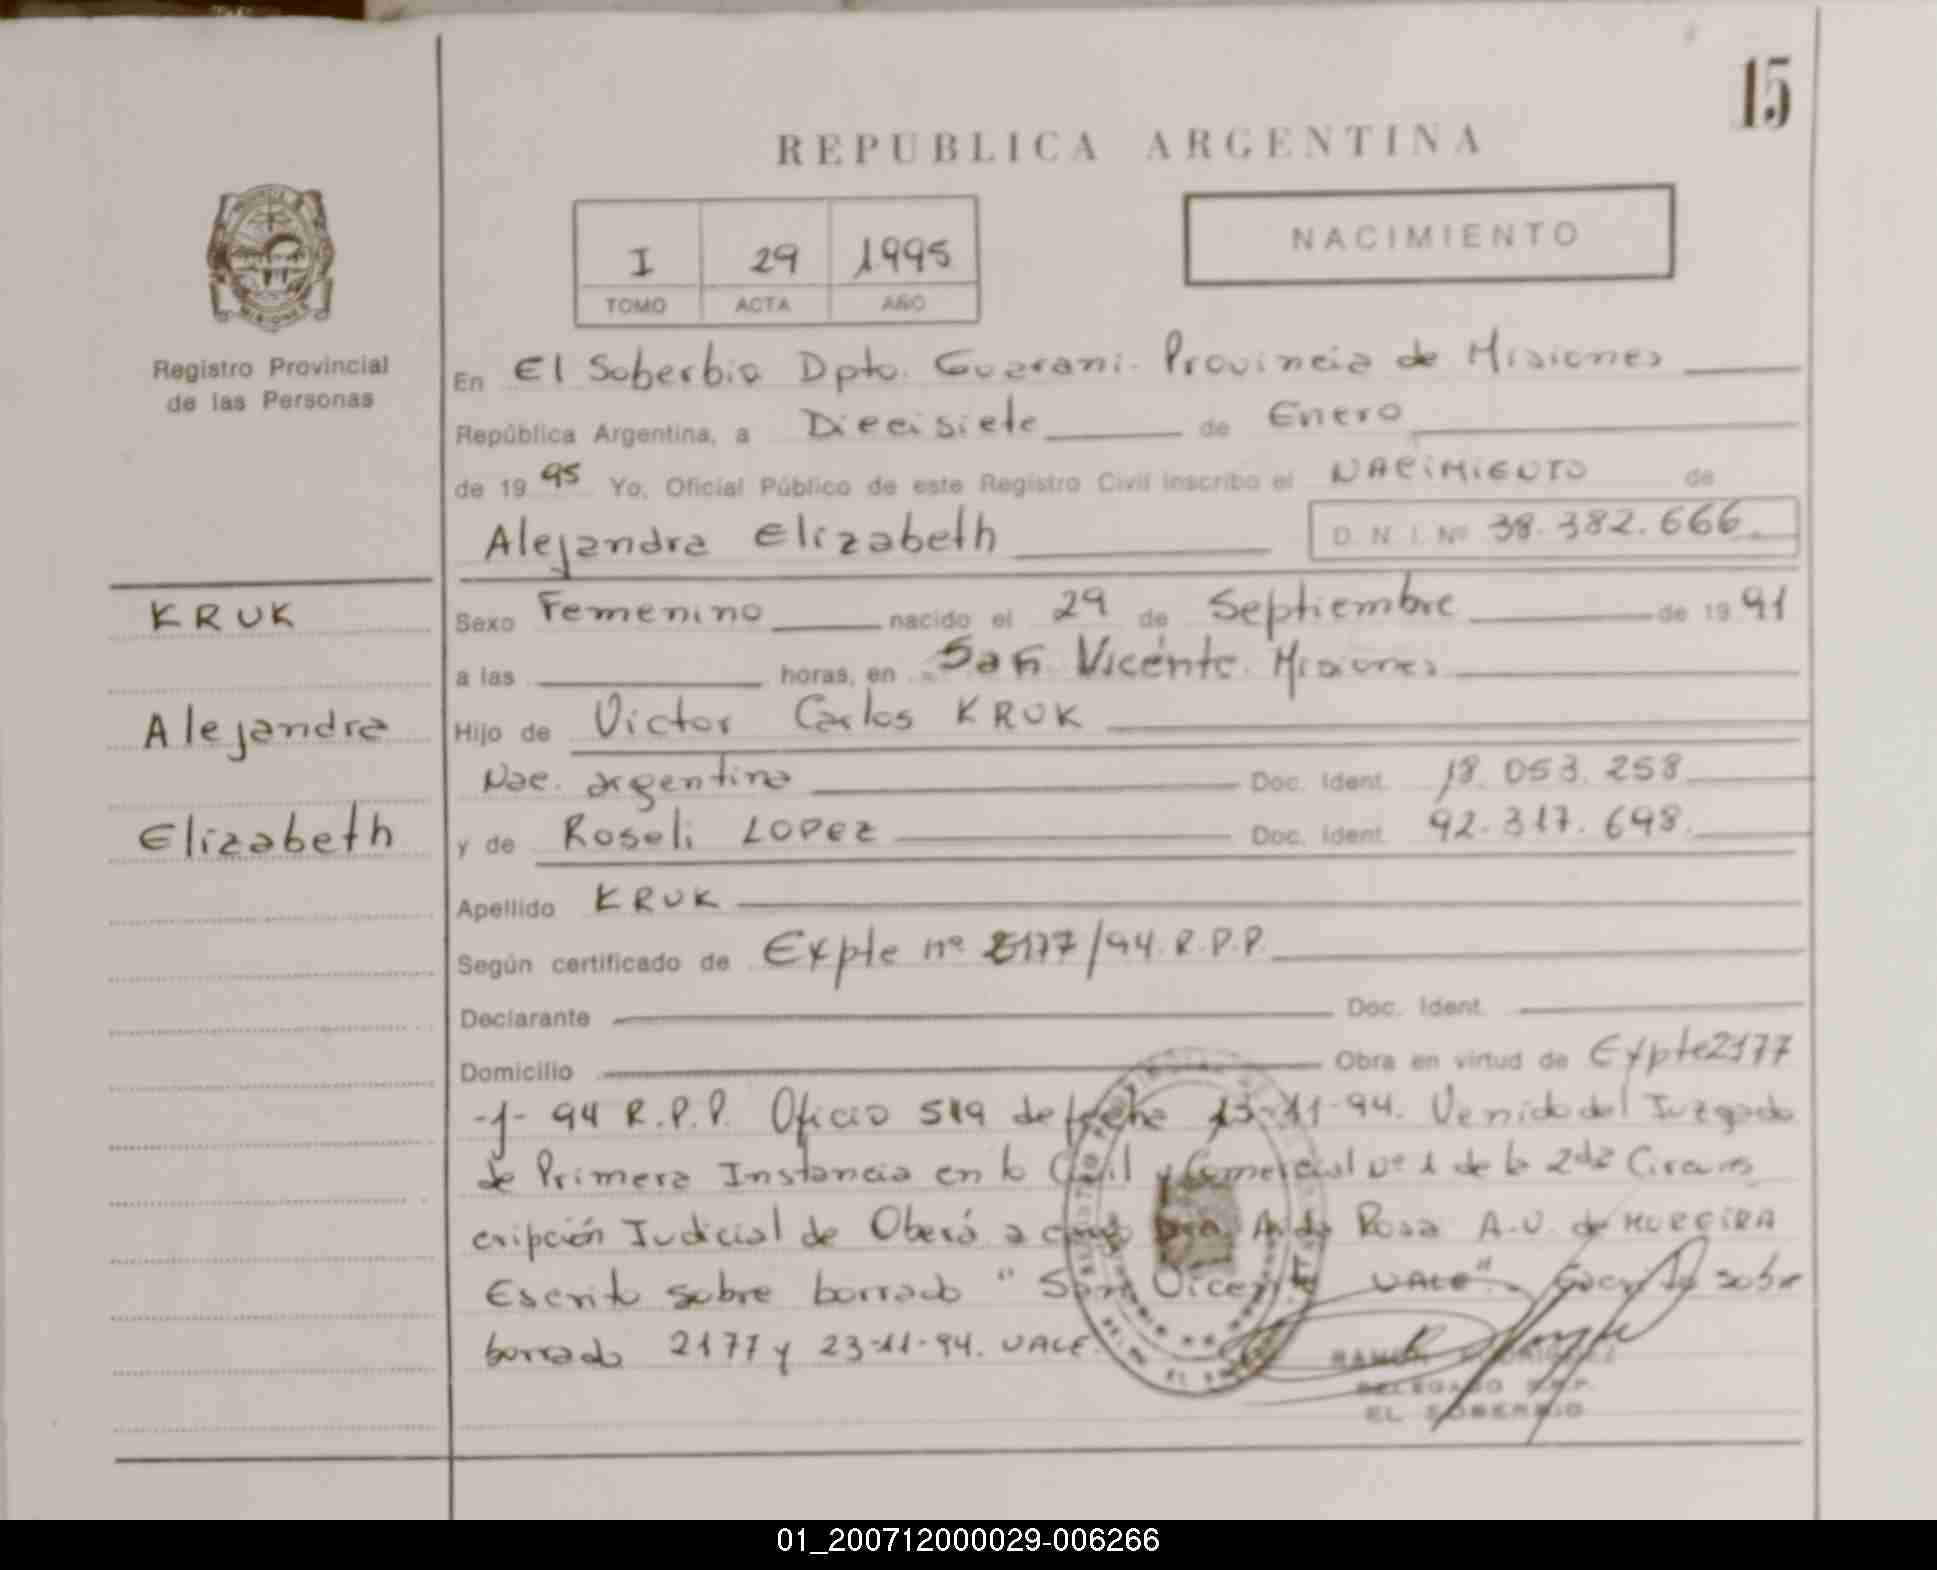 15
REPUBLICA ARGENTINA
I 29 1995
TOMO ACTA AÑO
NACIMIENTO
Registro Provincial
de las Personas
En El Soberbio Dpto. Guarani. Provincia de Misiones
República Argentina, a Diecisiete de Enero
de 19 95 Yo, Oficial Público de este Registro Civil inscribo el NACIMIENTO de
Alejandra Elizabeth D. N. I. Nº 38.382.666.
KRUK
Sexo Femenino nacido el 29 de Septiembre de 19 91
a las horas, en San Vicente. Misiones
Alejandra
Hijo de Victor Carlos KRUK
Nac. argentina Doc. Ident. 18.053.258
Elizabeth
y de Roseli LOPEZ Doc. Ident. 92.317.698.
Apellido KRUK
Según certificado de Expte nº 2177/94.R.P.P.
Declarante Doc. Ident.
Domicilio Obra en virtud de Expte 2177
-J- 94 R.P.P. Oficio 519 de fecha 23-11-94. Venido del Juzgado
de Primera Instancia en lo Civil y Comercial Nº 1 de la 2da Circuns
cripción Judicial de Oberá a cargo Dra. Rosa A.V. de MOREIRA
Escrito sobre borrado "San Vicente VALE". Escrito sobre
borrado 2177 y 23-11-94. VALE.
RAMON RODRIGUEZ
DELEGADO R.P.P.
EL SOBERBIO
01_200712000029-006266